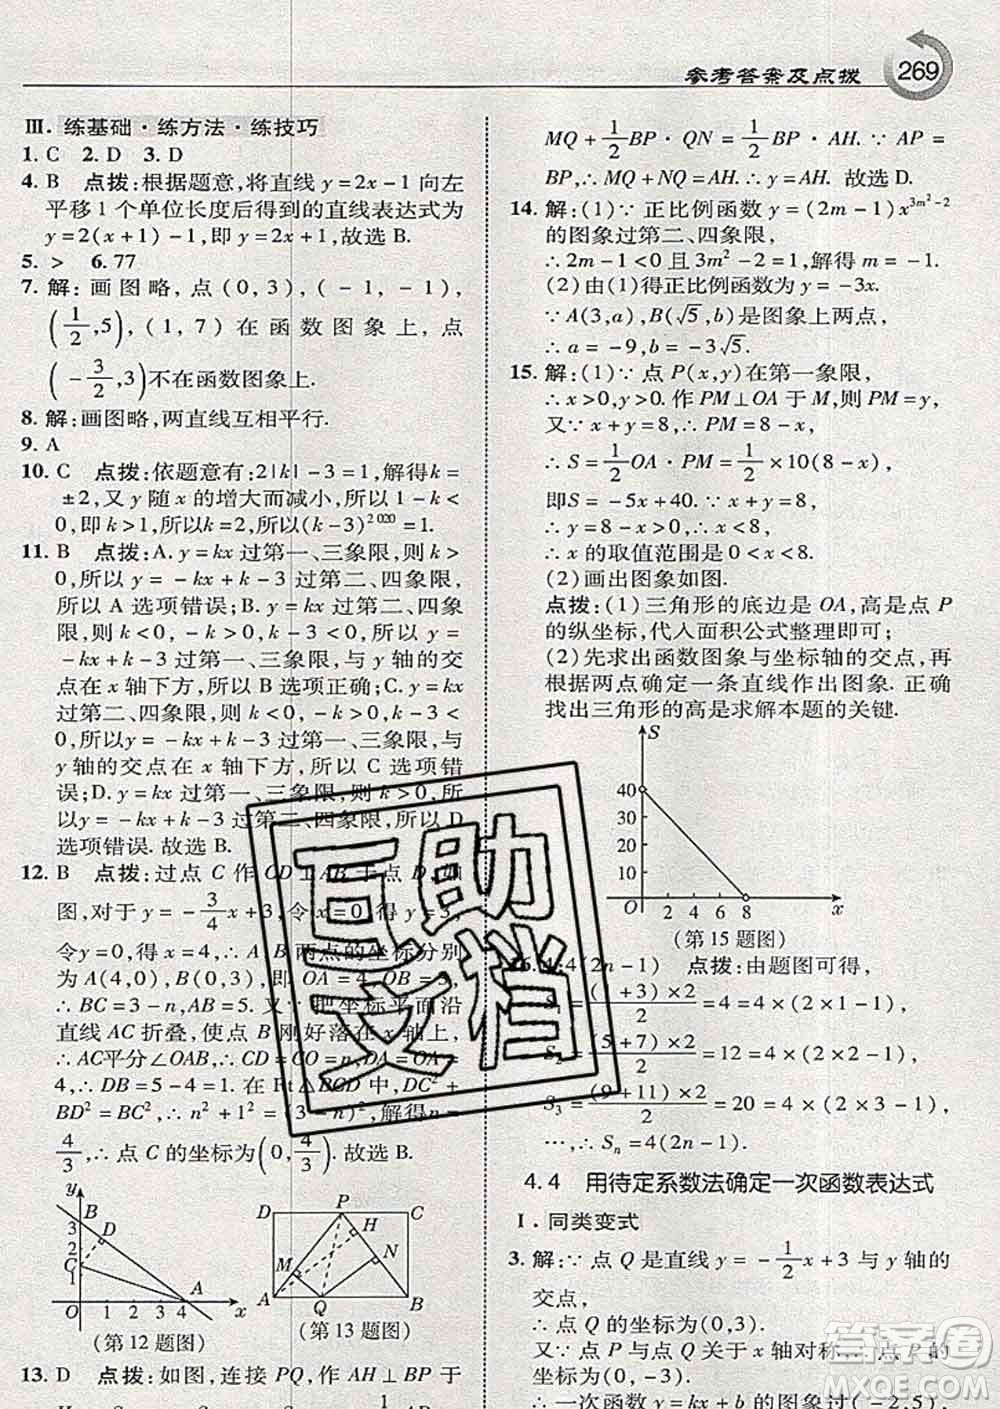 参考答案及点拨
269
Ⅲ. 练基础·练方法·练技巧
1. C 2. D 3. D
4. B 点拨:根据题意,将直线 y=2x-1 向左
平移 1 个单位长度后得到的直线表达式为
y=2(x+1)-1,即 y=2x+1,故选 B.
5. > 6. 77
7. 解:画图略,点(0,3),(-1,-1),
(1/2,5),(1,7)在函数图象上,点
(-3/2,3)不在函数图象上.
8. 解:画图略,两直线互相平行.
9. A
10. C 点拨:依题意有:2|k|-3=1,解得 k=
±2,又 y 随 x 的增大而减小,所以 1-k<
0,即 k>1,所以 k=2,所以(k-3)^2020=1.
11. B 点拨:A. y=kx 过第一、三象限,则 k>
0,所以 -k<0,k-3<0,
所以 A 选项错误;B. y=kx 过第二、四象
限,则 k<0,-k>0,k-3<0,所以 y=
-kx+k-3 过第一、三、四象限,与 y 轴的交
点在 x 轴下方,所以 B 选项正确;C. y=kx
过第二、四象限,则 k<0,
y 轴的交点在 x 轴下方,所以 C 选项错
误;D. y=kx
选项错误. 故选 B.
12. B 点拨:过点 C 作 CD⊥AB 于点 D,如
图,对于 y=-3/4x+3,令 x=0,得 y=3,
令 y=0,得 x=4,∴A,B 两点的坐标分别
为 A(4,0),B(0,3),即 OA=4,OB=3,
∴BC=3-n,AB=5. 又∵把坐标平面沿
直线 AC 折叠,使点 B 刚好落在 x 轴上,
∴AC平分∠OAB,∴CD=CO=n,DA=OA=
4,∴DB=5-4=1. 在 Rt△BCD 中,DC²+
BD²=BC²,∴n²+1²=(3-n)²,解得 n=
4/3,∴点 C 的坐标为(0,4/3).故选 B.
y
3
B
2
D
1
C
A
O 1 2 3 4 x
(第 12 题图)
D P C
H
M N
A Q B
(第 13 题图)
13. D 点拨:如图,连接 PQ,作 AH⊥BP 于
MQ+1/2BP·QN=1/2BP·AH.∵AP=
BP,∴MQ+NQ=AH.∴y=AH. 故选 D.
14. 解:(1)∵正比例函数 y=(2m-1)x^(3m²-2)
的图象过第二、四象限,
∴2m-1<0 且 3m²-2=1.解得 m=-1.
(2)由(1)得正比例函数为 y=-3x.
∵A(3,a),B(√5,b)是图象上两点,
∴a=-9,b=-3√5.
15. 解:(1)∵点 P(x,y)在第一象限,
∴x>0,y>0. 作 PM⊥OA 于 M,则 PM=y.
∵x+y=8,∴y=8-x,∴PM=8-x,
∴S=1/2OA·PM=1/2×10(8-x).
即S=-5x+40.∵x+y=8,
∴y=8-x>0.∴x<8.
∴x 的取值范围是 0<x<8.
(2)画出图象如图.
点拨:(1)三角形的底边是 OA,高是点 P
的纵坐标,代入面积公式整理即可;
(2)先求出函数图象与坐标轴的交点,再
根据两点确定一条直线作出图象. 正确
找出三角形的高是求解本题的关键.
S
40
30
20
10
O 2 4 6 8 x
(第 15 题图)
16. 4;4(2n-1) 点拨:由题图可得,
S₁=(1+3)×2/2=4=4×(2×1-1),
S₂=(5+7)×2/2=12=4×(2×2-1),
S₃=(9+11)×2/2=20=4×(2×3-1),
…,∴Sₙ=4(2n-1).
4.4 用待定系数法确定一次函数表达式
Ⅰ. 同类变式
3. 解:∵点 Q 是直线 y=-1/2x+3 与 y 轴的
交点,
∴点 Q 的坐标为(0,3).
又∵点 P 与点 Q 关于 x 轴对称,∴点 P 的
坐标为(0,-3).
∴一次函数 y=kx+b 的图象过(-2,5),
互助文档
答案圈
MXQE.COM